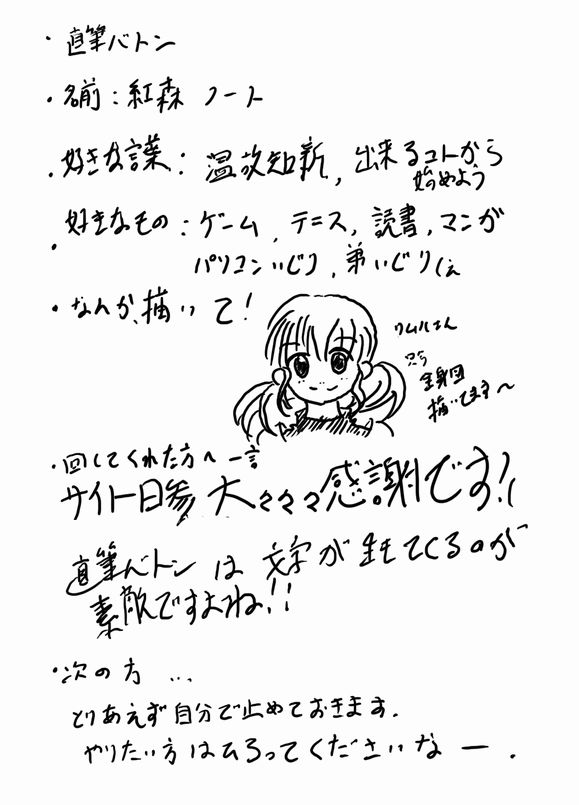 ・直筆バトン
・名前：紅森 ノート
・好きな言葉：温故知新，出来るコトから
始めよう
・好きなもの：ゲーム，テニス，読書，マンガ
パソコンいじり，弟いじり(え
・なんか、描いて！
リムルさん
只今
全身図
描いてます〜
・回してくれた方へ一言
サイト日参 大々々々感謝です！！
直筆バトンは文字が生きてくるのが
素敵ですよね！！
・次の方 …
とりあえず自分で止めておきます．
やりたい方はひろってくださいなー．